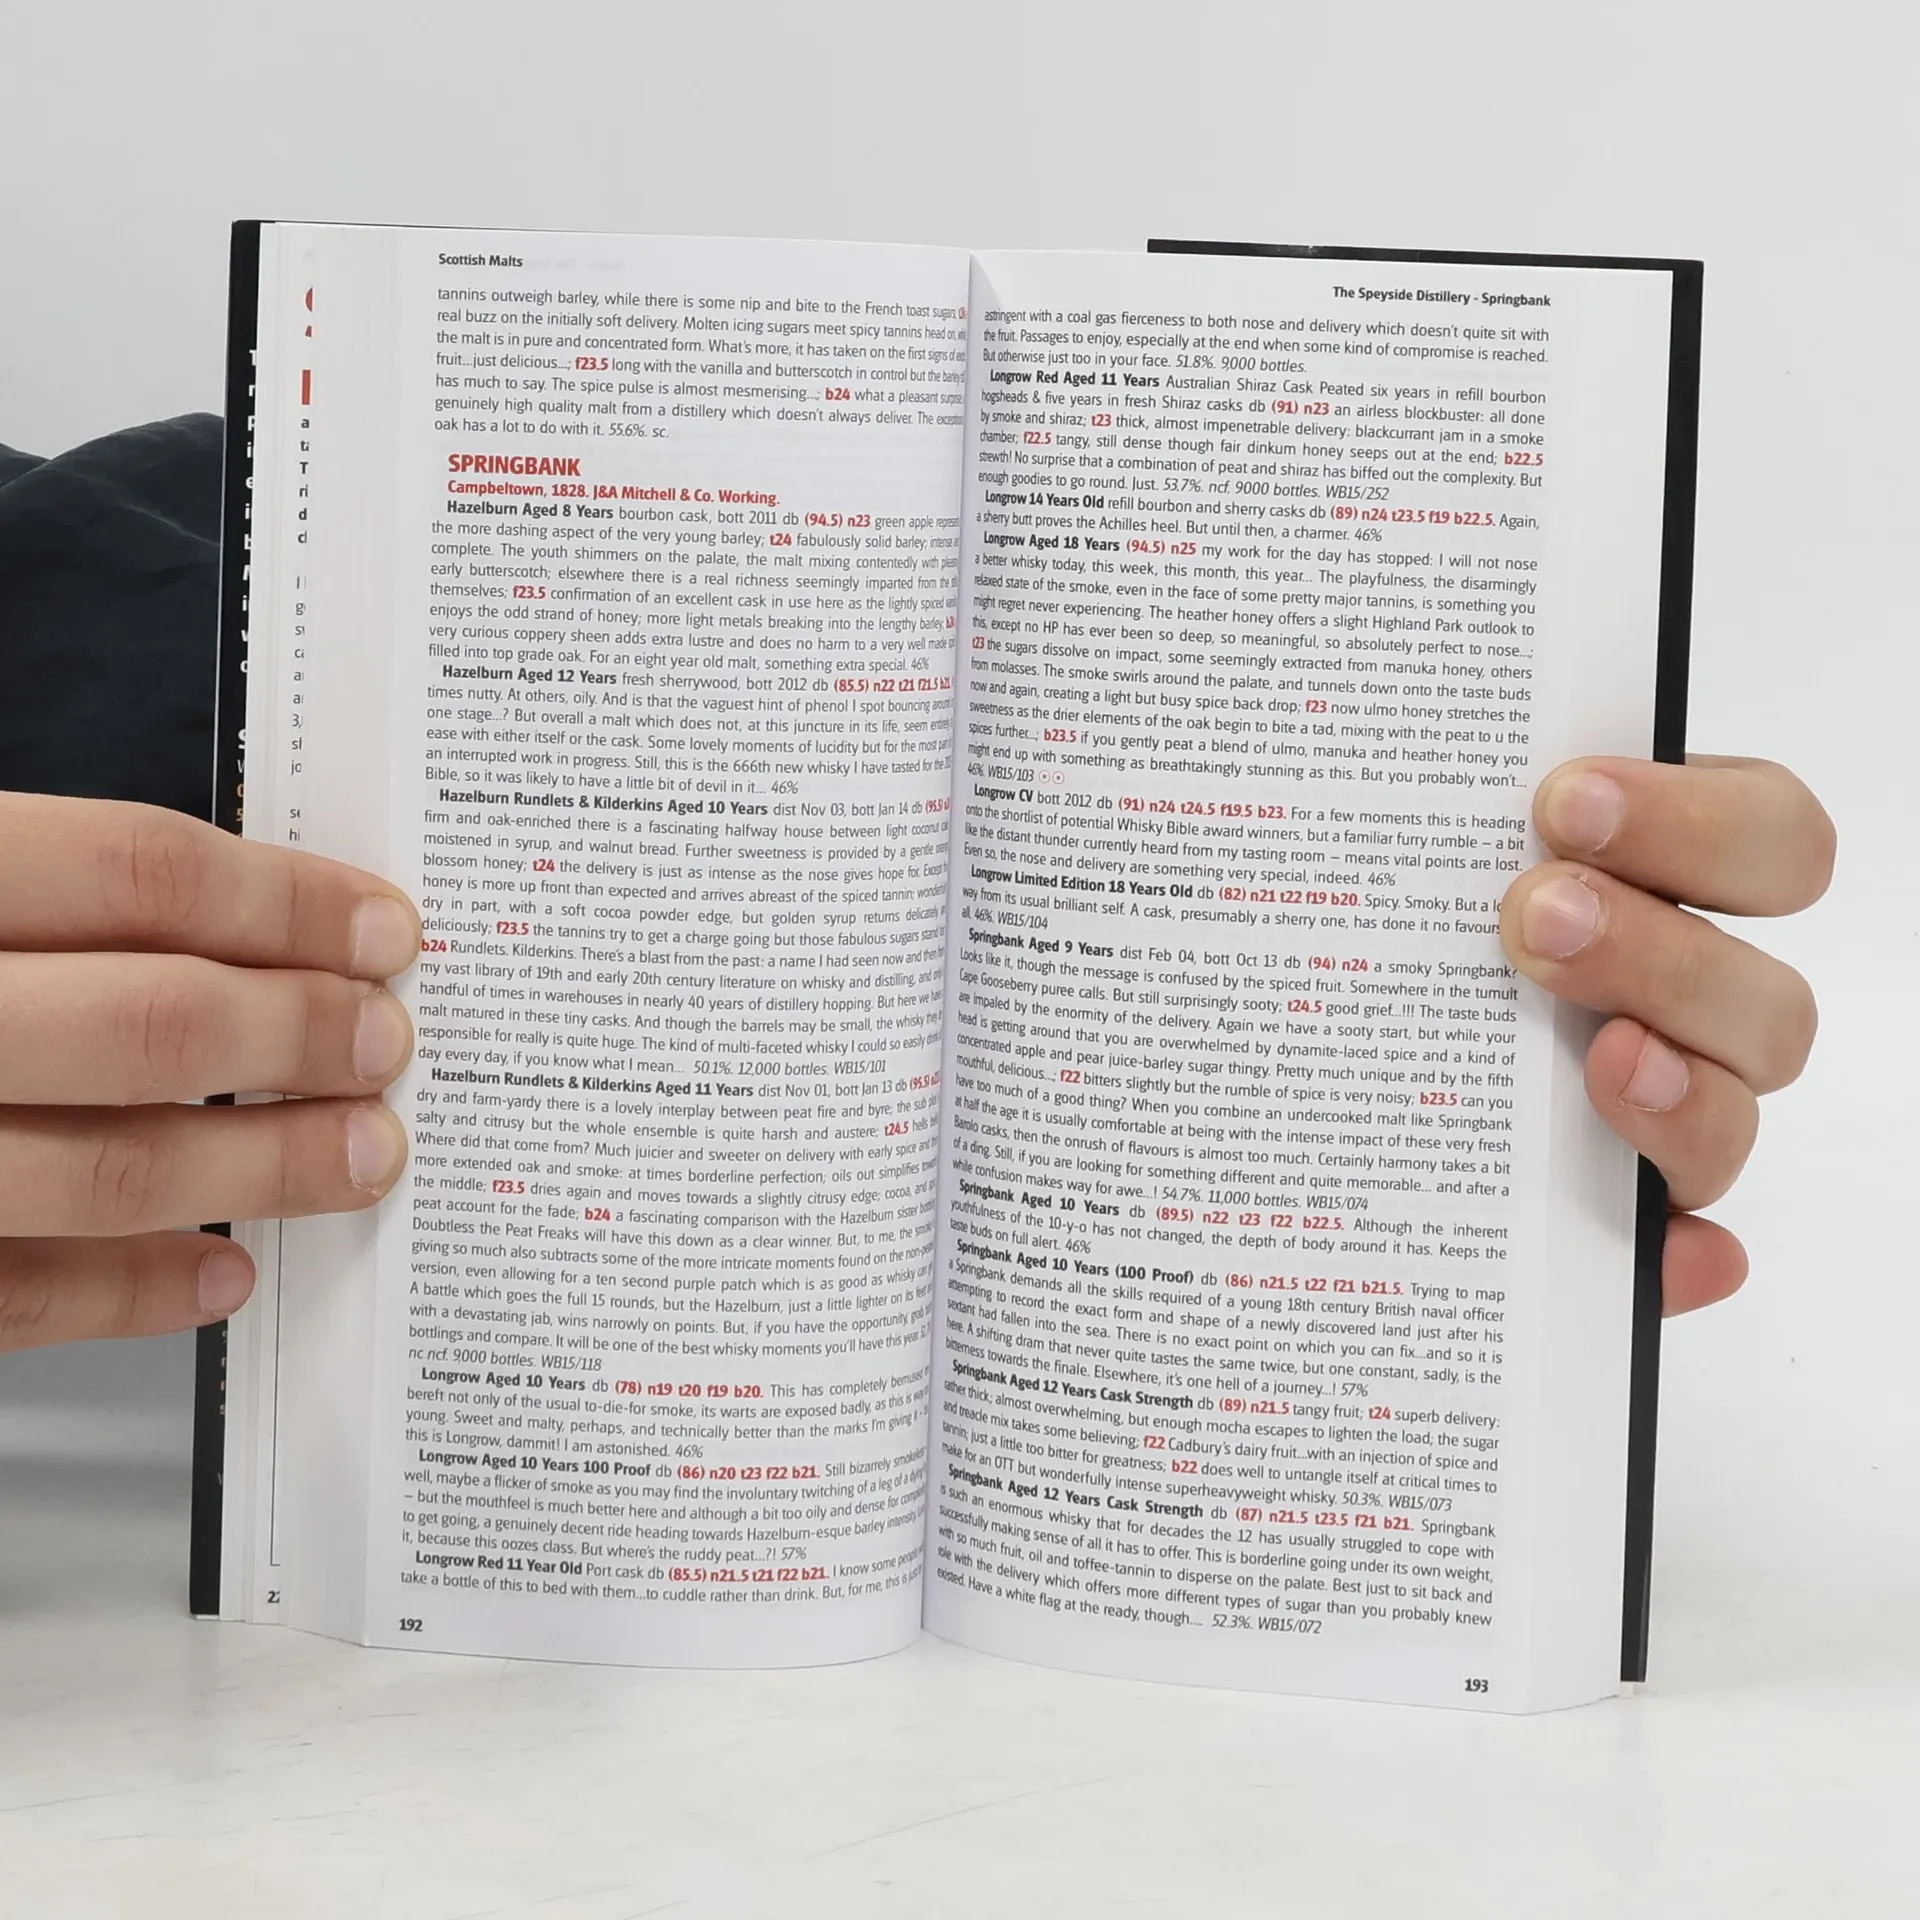 Scottish Malts
tannins outweigh barley, while there is some nip and bite to the French toast sugars,
real buzz on the initially soft delivery. Molten icing sugars meet spicy tannins head on,
the malt is in pure and concentrated form. What's more, it has taken on the first signs of
fruit...just delicious...; f23.5 long with the vanilla and butterscotch in control but the barley
has much to say. The spice pulse is almost mesmerising...; b24 what a pleasant surprise
genuinely high quality malt from a distillery which doesn't always deliver. The
oak has a lot to do with it. 55.6%. sc.
SPRINGBANK
Campbeltown, 1828. J&A Mitchell & Co. Working.
Hazelburn Aged 8 Years bourbon cask, bott 2011 db (94.5) n23 green apple
the more dashing aspect of the very young barley; t24 fabulously solid barley; intense
complete. The youth shimmers on the palate, the malt mixing contentedly with
early butterscotch; elsewhere there is a real richness seemingly imparted from the
themselves; f23.5 confirmation of an excellent cask in use here as the lightly spiced
enjoys the odd strand of honey; more light metals breaking into the lengthy barley;
very curious coppery sheen adds extra lustre and does no harm to a very well made
filled into top grade oak. For an eight year old malt, something extra special. 46%
Hazelburn Aged 12 Years fresh sherrywood, bott 2012 db (85.5) n22 t21 f21.5 b21
times nutty. At others, oily. And is that the vaguest hint of phenol I spot bouncing around
one stage...? But overall a malt which does not, at this juncture in its life, seem entirely
ease with either itself or the cask. Some lovely moments of lucidity but for the most part
an interrupted work in progress. Still, this is the 666th new whisky I have tasted for the
Bible, so it was likely to have a little bit of devil in it... 46%
Hazelburn Rundlets & Kilderkins Aged 10 Years dist Nov 03, bott Jan 14 db (95.5)
firm and oak-enriched there is a fascinating halfway house between light coconut
moistened in syrup, and walnut bread. Further sweetness is provided by a gentle
blossom honey; t24 the delivery is just as intense as the nose gives hope for. Except
honey is more up front than expected and arrives abreast of the spiced tannin;
dry in part, with a soft cocoa powder edge, but golden syrup returns delicately
deliciously; f23.5 the tannins try to get a charge going but those fabulous sugars stand
b24 Rundlets. Kilderkins. There's a blast from the past: a name I had seen now and then
my vast library of 19th and early 20th century literature on whisky and distilling, and
handful of times in warehouses in nearly 40 years of distillery hopping. But here we have
malt matured in these tiny casks. And though the barrels may be small, the whisky they
responsible for really is quite huge. The kind of multi-faceted whisky I could so easily
day every day, if you know what I mean... 50.1%. 12,000 bottles. WB15/101
Hazelburn Rundlets & Kilderkins Aged 11 Years dist Nov 01, bott Jan 13 db (95.5)
dry and farm-yardy there is a lovely interplay between peat fire and byre; the sub
salty and citrusy but the whole ensemble is quite harsh and austere; t24.5 hells
Where did that come from? Much juicier and sweeter on delivery with early spice and
more extended oak and smoke: at times borderline perfection; oils out simplifies
the middle; f23.5 dries again and moves towards a slightly citrusy edge; cocoa, and
peat account for the fade; b24 a fascinating comparison with the Hazelburn sister
Doubtless the Peat Freaks will have this down as a clear winner. But, to me, the smoke
giving so much also subtracts some of the more intricate moments found on the
version, even allowing for a ten second purple patch which is as good as whisky can
A battle which goes the full 15 rounds, but the Hazelburn, just a little lighter on its feet
with a devastating jab, wins narrowly on points. But, if you have the opportunity, grab
bottlings and compare. It will be one of the best whisky moments you'll have this year.
nc ncf. 9,000 bottles. WB15/118
Longrow Aged 10 Years db (78) n19 t20 f19 b20. This has completely bemused
bereft not only of the usual to-die-for smoke, its warts are exposed badly, as this is way
young. Sweet and malty, perhaps, and technically better than the marks I'm giving it
this is Longrow, dammit! I am astonished. 46%
Longrow Aged 10 Years 100 Proof db (86) n20 t23 f22 b21. Still bizarrely
well, maybe a flicker of smoke as you may find the involuntary twitching of a leg of a
– but the mouthfeel is much better here and although a bit too oily and dense for
to get going, a genuinely decent ride heading towards Hazelburn-esque barley intensity
it, because this oozes class. But where's the ruddy peat...?! 57%
Longrow Red 11 Year Old Port cask db (85.5) n21.5 t21 f22 b21. I know some people
take a bottle of this to bed with them...to cuddle rather than drink. But, for me, this is
192
The Speyside Distillery - Springbank
astringent with a coal gas fierceness to both nose and delivery which doesn't quite sit with
the fruit. Passages to enjoy, especially at the end when some kind of compromise is reached.
But otherwise just too in your face. 51.8%. 9,000 bottles.
Longrow Red Aged 11 Years Australian Shiraz Cask Peated six years in refill bourbon
hogsheads & five years in fresh Shiraz casks db (91) n23 an airless blockbuster: all done
by smoke and shiraz; t23 thick, almost impenetrable delivery: blackcurrant jam in a smoke
chamber; f22.5 tangy, still dense though fair dinkum honey seeps out at the end; b22.5
strewth! No surprise that a combination of peat and shiraz has biffed out the complexity. But
enough goodies to go round. Just. 53.7%. ncf. 9000 bottles. WB15/252
Longrow 14 Years Old refill bourbon and sherry casks db (89) n24 t23.5 f19 b22.5. Again,
a sherry butt proves the Achilles heel. But until then, a charmer. 46%
Longrow Aged 18 Years (94.5) n25 my work for the day has stopped: I will not nose
a better whisky today, this week, this month, this year... The playfulness, the disarmingly
relaxed state of the smoke, even in the face of some pretty major tannins, is something you
might regret never experiencing. The heather honey offers a slight Highland Park outlook to
this, except no HP has ever been so deep, so meaningful, so absolutely perfect to nose...;
t23 the sugars dissolve on impact, some seemingly extracted from manuka honey, others
from molasses. The smoke swirls around the palate, and tunnels down onto the taste buds
now and again, creating a light but busy spice back drop; f23 now ulmo honey stretches the
sweetness as the drier elements of the oak begin to bite a tad, mixing with the peat to u the
spices further...; b23.5 if you gently peat a blend of ulmo, manuka and heather honey you
might end up with something as breathtakingly stunning as this. But you probably won't...
46%. WB15/103
Longrow CV bott 2012 db (91) n24 t24.5 f19.5 b23. For a few moments this is heading
onto the shortlist of potential Whisky Bible award winners, but a familiar furry rumble – a bit
like the distant thunder currently heard from my tasting room – means vital points are lost.
Even so, the nose and delivery are something very special, indeed. 46%
Longrow Limited Edition 18 Years Old db (82) n21 t22 f19 b20. Spicy. Smoky. But a
way from its usual brilliant self. A cask, presumably a sherry one, has done it no favours
all. 46%. WB15/104
Springbank Aged 9 Years dist Feb 04, bott Oct 13 db (94) n24 a smoky Springbank?
Looks like it, though the message is confused by the spiced fruit. Somewhere in the tumult
Cape Gooseberry puree calls. But still surprisingly sooty; t24.5 good grief...!!! The taste buds
are impaled by the enormity of the delivery. Again we have a sooty start, but while your
head is getting around that you are overwhelmed by dynamite-laced spice and a kind of
concentrated apple and pear juice-barley sugar thingy. Pretty much unique and by the fifth
mouthful, delicious...; f22 bitters slightly but the rumble of spice is very noisy; b23.5 can you
have too much of a good thing? When you combine an undercooked malt like Springbank
at half the age it is usually comfortable at being with the intense impact of these very fresh
Barolo casks, then the onrush of flavours is almost too much. Certainly harmony takes a bit
of a ding. Still, if you are looking for something different and quite memorable... and after a
while confusion makes way for awe...! 54.7%. 11,000 bottles. WB15/074
Springbank Aged 10 Years db (89.5) n22 t23 f22 b22.5. Although the inherent
youthfulness of the 10-y-o has not changed, the depth of body around it has. Keeps the
taste buds on full alert. 46%
Springbank Aged 10 Years (100 Proof) db (86) n21.5 t22 f21 b21.5. Trying to map
a Springbank demands all the skills required of a young 18th century British naval officer
attempting to record the exact form and shape of a newly discovered land just after his
sextant had fallen into the sea. There is no exact point on which you can fix...and so it is
here. A shifting dram that never quite tastes the same twice, but one constant, sadly, is the
bitterness towards the finale. Elsewhere, it's one hell of a journey...! 57%
Springbank Aged 12 Years Cask Strength db (89) n21.5 tangy fruit; t24 superb delivery:
rather thick; almost overwhelming, but enough mocha escapes to lighten the load; the sugar
and treacle mix takes some believing; f22 Cadbury's dairy fruit...with an injection of spice and
tannin; just a little too bitter for greatness; b22 does well to untangle itself at critical times to
make for an OTT but wonderfully intense superheavyweight whisky. 50.3%. WB15/073
Springbank Aged 12 Years Cask Strength db (87) n21.5 t23.5 f21 b21. Springbank
is such an enormous whisky that for decades the 12 has usually struggled to cope with
successfully making sense of all it has to offer. This is borderline going under its own weight,
with so much fruit, oil and toffee-tannin to disperse on the palate. Best just to sit back and
role with the delivery which offers more different types of sugar than you probably knew
existed. Have a white flag at the ready, though.... 52.3%. WB15/072
193